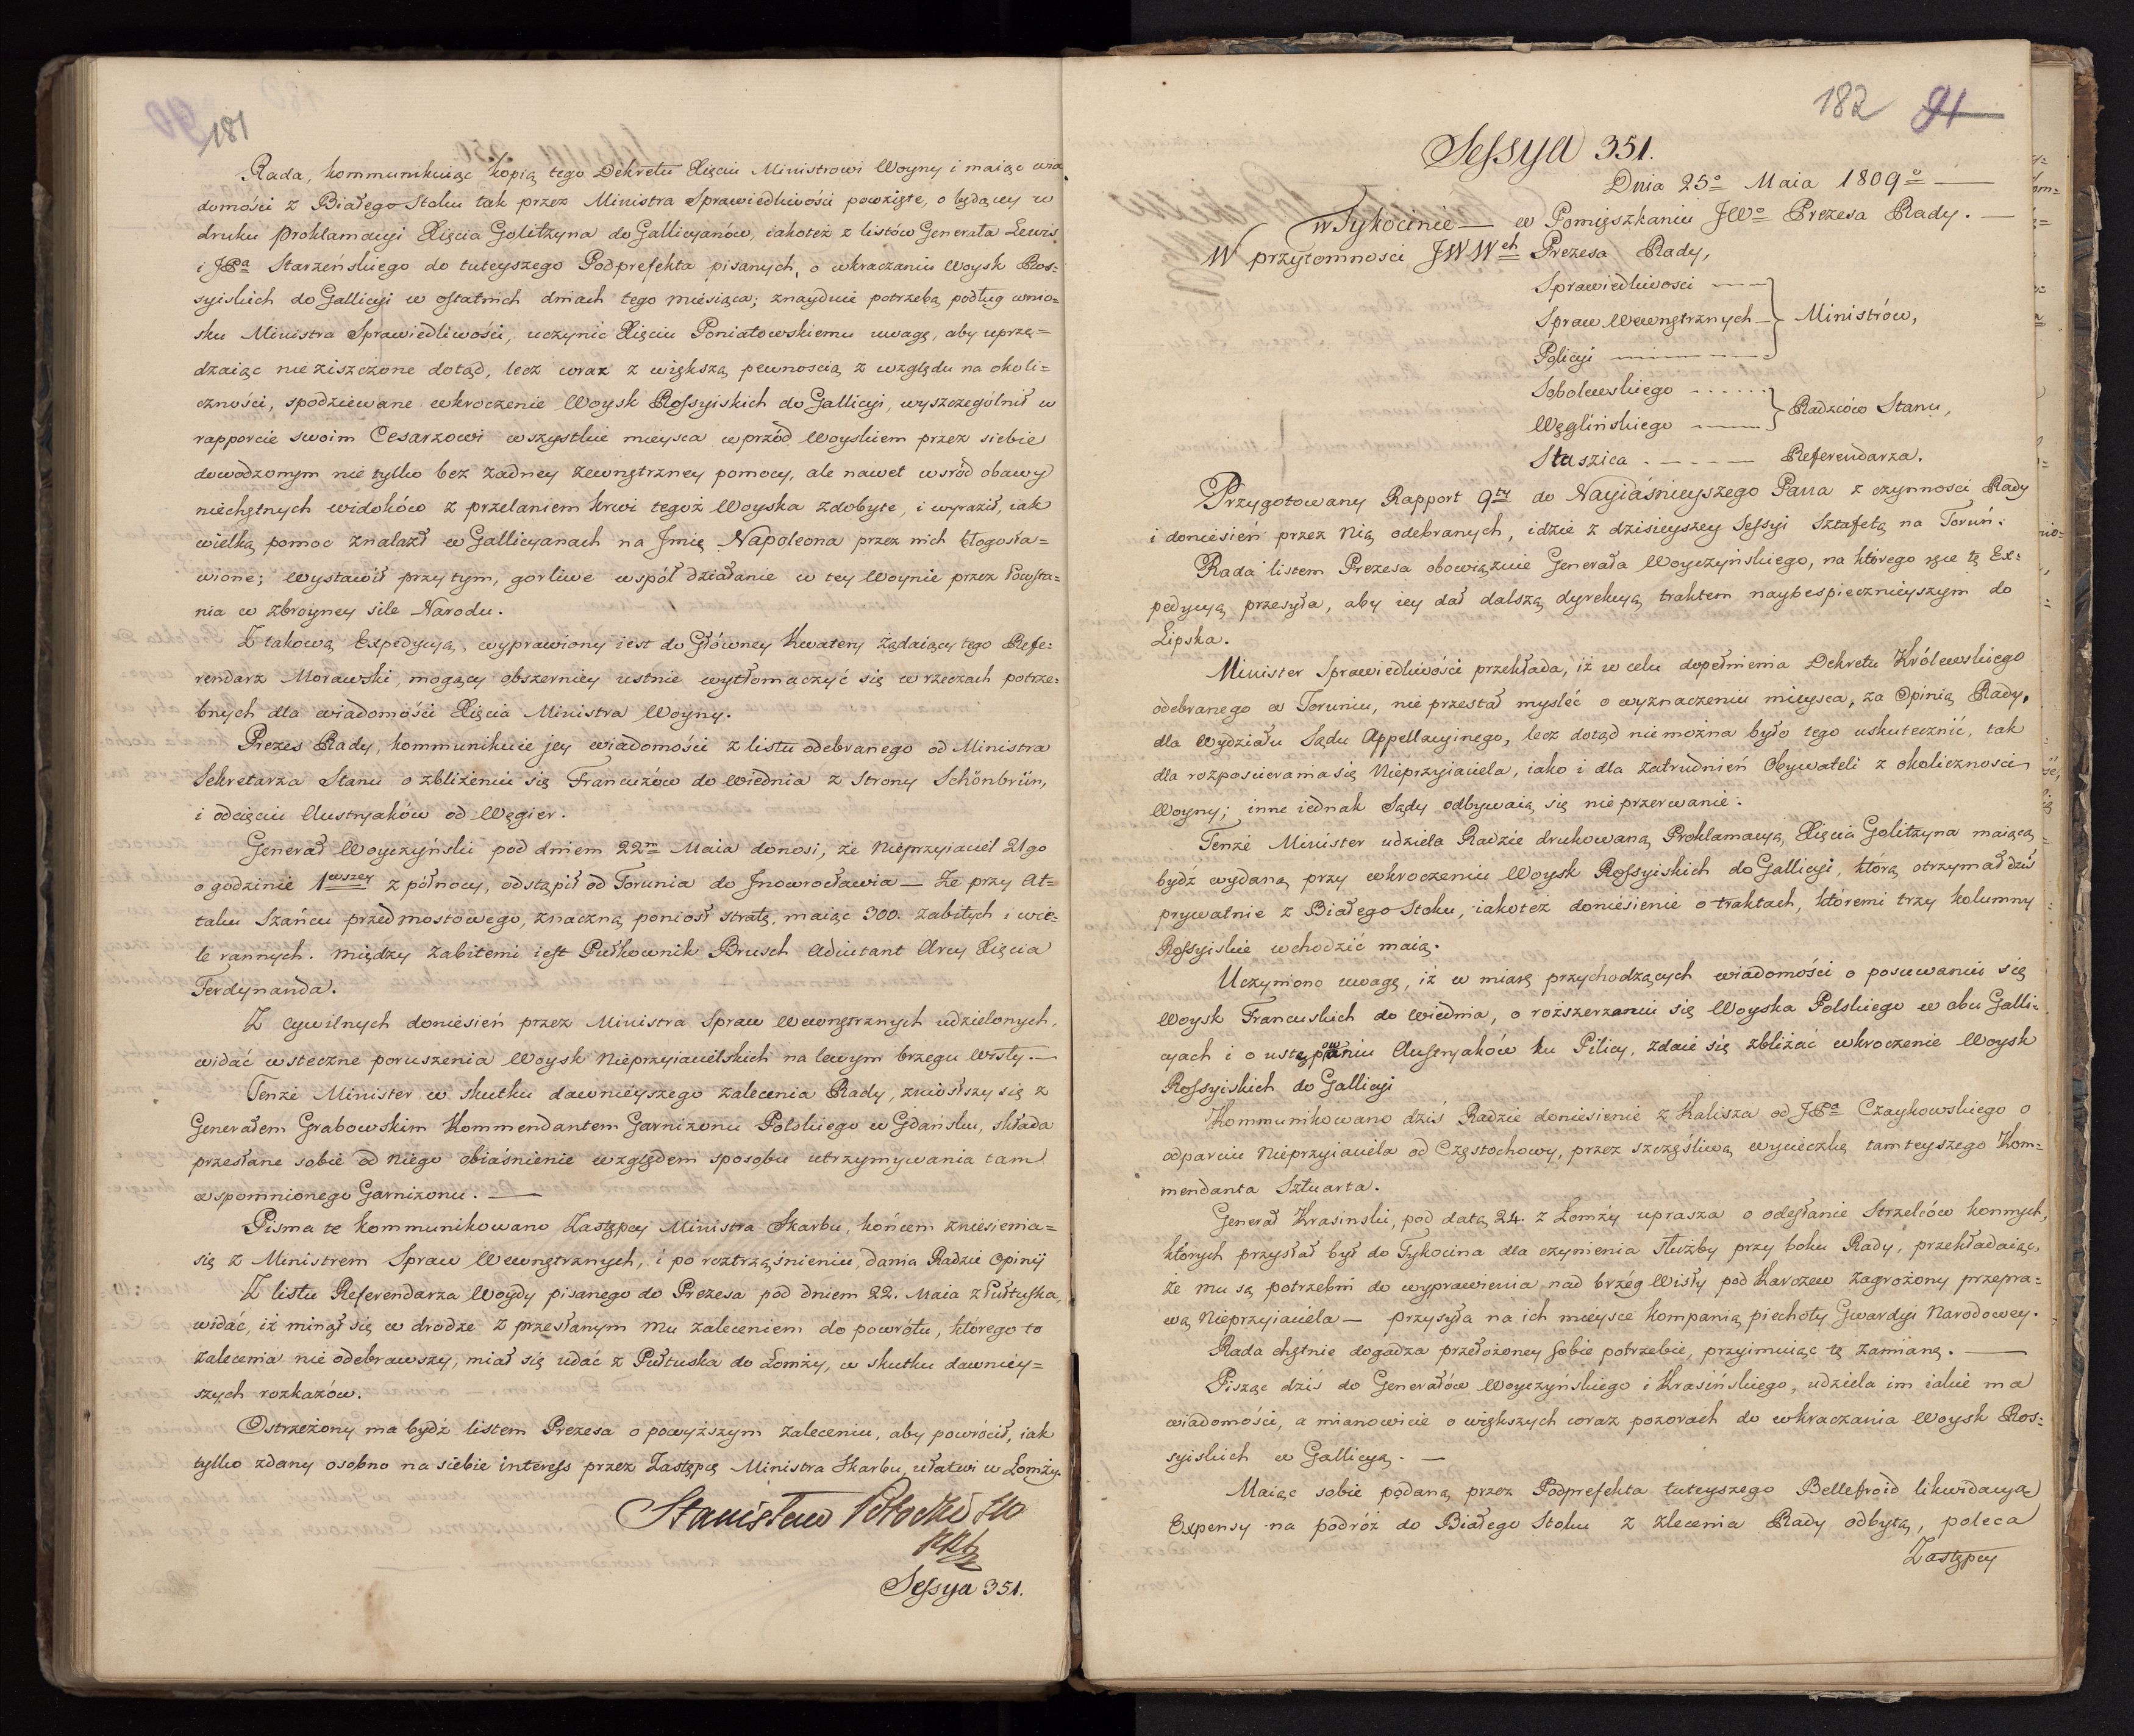 181
Rada, kommunikuiąc kopią tego Dekretu Xięciu Ministrowi Woyny i maiąc wia
domości z Białego Stoku tak przez Ministra Sprawiedliwości powzięte, o będącey w
druku Proklamacyi Xięcia Golitzyna do Gallicyanów, iakoteż z listów Generała Lewis
i JPa Starzeńskiego do tuteyszego Podprefekta pisanych, o wkraczaniu Woysk Ros=
syiskich do Gallicyi w ostatnich dniach tego miesiąca; znayduie potrzebą, podług wnio=
sku Ministra Sprawiedliwości, uczynić Xięciu Poniatowskiemu uwagę, aby uprze=
dzaiąc nie ziszczone dotąd, lecz coraz z większą pewnością z względu na okoli=
czności, spodziewane wkroczenie Woysk Rossyiskich do Gallicyi, wyszczególnił w
rapporcie swoim Cesarzowi wszystkie mieysca wprzód Woyskiem przez siebie
dowodzonym nie tylko bez żadney zewnętrzney pomocy, ale nawet wsród obawy
niechętnych widoków z przelaniem krwi tegoż Woyska zdobyte, i wyraził, iak
wielką pomoc znalazł w Gallicyanach na Jmię Napoleona przez nich błogosła=
wione; wystawił przytym, gorliwe współ działanie w tey Woynie przez Powsta=
nia w zbroyney sile Narodu.
Z takową Expedycyą, wyprawiony iest do Główney Kwatery żądaiący tego Refe=
rendarz Morawski, mogący obszerniey ustnie wytłomaczyć się w rzeczach potrze=
bnych dla wiadomości Xięcia Ministra Woyny.
Prezes Rady, kommunikuie jey wiadomości z listu odebranego od Ministra
Sekretarza Stanu o zbliżeniu się Francuzów do Wiednia z strony Schönbrün,
i odcięciu Austryaków od Węgier.
Generał Woyczyński pod dniem 22m Maia donosi, że Nieprzyiaciel 21go
o godzinie 1wszey z północy, odstąpił od Torunia do Jnowrocławia — że przy At=
taku Szańcu przedmostowego, znaczną poniosł stratę, maiąc 300. zabitych i wie=
le rannych. między zabitemi iest Pułkownik Brusch Adiutant Arcy Xięcia
Ferdynanda.
Z cywilnych doniesień przez Ministra Spraw Wewnętrznych udzielonych,
widać wsteczne poruszenia Woysk Nieprzyiacielskich na lewym brzegu Wisły. —
Tenże Minister w skutku dawnieyszego zalecenia Rady, zniosłszy się z
Generałem Grabowskim Kommendantem Garnizonu Polskiego w Gdańsku, składa
przesłane sobie od niego obiaśnienie względem sposobu utrzymywania tam
wspomnionego Garnizonu. —
Pisma te kommunikowano Zastępcy Ministra Skarbu, końcem zniesienia=
się z Ministrem Spraw Wewnętrznych, i po roztrząśnieniu, dania Radzie Opinij
Z listu Referendarza Woydy pisanego do Prezesa pod dniem 22. Maia z Pułtuska,
widać, iż minął się w drodze z przesłanym mu zaleceniem do powrotu, którego to
zalecenia nie odebrawszy, miał się udać z Pułtuska do Łomży, w skutku dawniey=
szych rozkazów.
Ostrzeżony ma bydź listem Prezesa o powyższym zaleceniu, aby powrócił, iak
tylko zdany osobno na siebie interess przez Zastępcę Ministra Skarbu, ułatwi w Łomży.
Stanisław Potocki
Sessya 351.
182 91
Sessya 351.
Dnia 25o Maia 1809o —
w Tykocinie — w Pomięszkaniu JWo Prezesa Rady. —
W przytomnosci JWWch Prezesa Rady,
Sprawiedliwosci —
Spraw Wewnętrznych — } Ministrów,
Policyi —
Sobolewskiego
Węglińskiego — } Radzców Stanu,
Staszica — Referendarza.
Przygotowany Rapport 9ty do Nayiaśnieyszego Pana z czynnosci Rady
i doniesień przez Nią odebranych, idzie z dzisieyszey Sessyi Sztafetą na Toruń.
Rada listem Prezesa obowiązuie Generała Woyczyńskiego, na którego ręce tę Ex=
pedycyą przesyła, aby iey dał dalszą dyrekcyą traktem naybespiecznieyszym do
Lipska.
Minister Sprawiedliwości przekłada, iż w celu dopełnienia Dekretu Królewskiego
odebranego w Toruniu, nie przestał mysleć o wyznaczeniu mieysca, za Opinią Rady,
dla Wydziału Sądu Appellacyinego, lecz dotąd niemożna było tego uskutecznić, tak
dla rozpościerania się Nieprzyiaciela, iako i dla zatrudnień Obywateli z okoliczności
Woyny; inne iednak Sądy odbywaią się nieprzerwanie.
Tenże Minister udziela Radzie drukowaną Proklamacyą, Xięcia Golitzyna maiącą
bydź wydaną przy wkroczeniu Woysk Rossyiskich do Gallicyi, którą otrzymał dziś
prywatnie z Białego Stoku, iakoteż doniesienie o traktach, któremi trzy kolumny
Rossyiskie wchodzić maią.
Uczyniono uwagę, iż w miarę przychodzących wiadomości o posuwaniu się
Woysk Francuskich do Wiednia, o rozszerzaniu się Woyska Polskiego w obu Galli=
cyach i o ustępowaniu Austryaków ku Pilicy, zdaie się zbliżać wkroczenie Woysk
Rossyiskich do Gallicyi
Kommunikowano dziś Radzie doniesienie z Kalisza od JPa Czaykowskiego o
odparciu Nieprzyiaciela od Częstochowy, przez szczęśliwą wycieczkę tamteyszego Kom=
mendanta Sztuarta.
Generał Krasinski, pod datą 24. z Łomży uprasza o odesłanie Strzelców konnych,
których przysłał był do Tykocina dla czynienia służby przy boku Rady, przekładaiąc,
że mu są potrzebni do wyprawienia nad brzeg Wisły pod Karczew zagrożony przepra=
wą Nieprzyiaciela — przysyła na ich mieysce kompanią piechoty Gwardyi Narodowey.
Rada chętnie dogadza przełożoney sobie potrzebie, przyimuiąc tę zamianę. —
Pisząc dziś do Generałów Woyczyńskiego i Krasińskiego, udziela im iakie ma
wiadomości, a mianowicie o większych coraz pozorach do wkraczania Woysk Ros=
syiskich w Gallicyą. —
Maiąc sobie podaną przez Podprefekta tuteyszego Bellefroid likwidacyą
Expensy na podróż do Białego Stoku z zlecenia Rady odbytą, poleca
Zastępcy